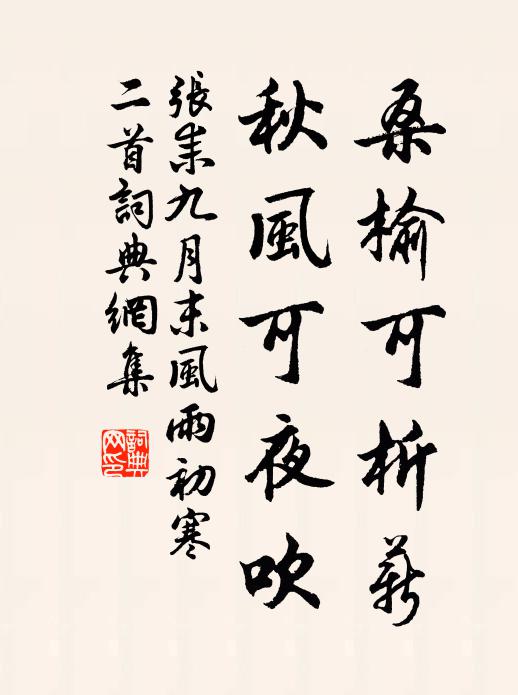 桑榆可析薪
秋風可夜吹
張耒九月末風雨初寒
二首詞典網集
詞典網印